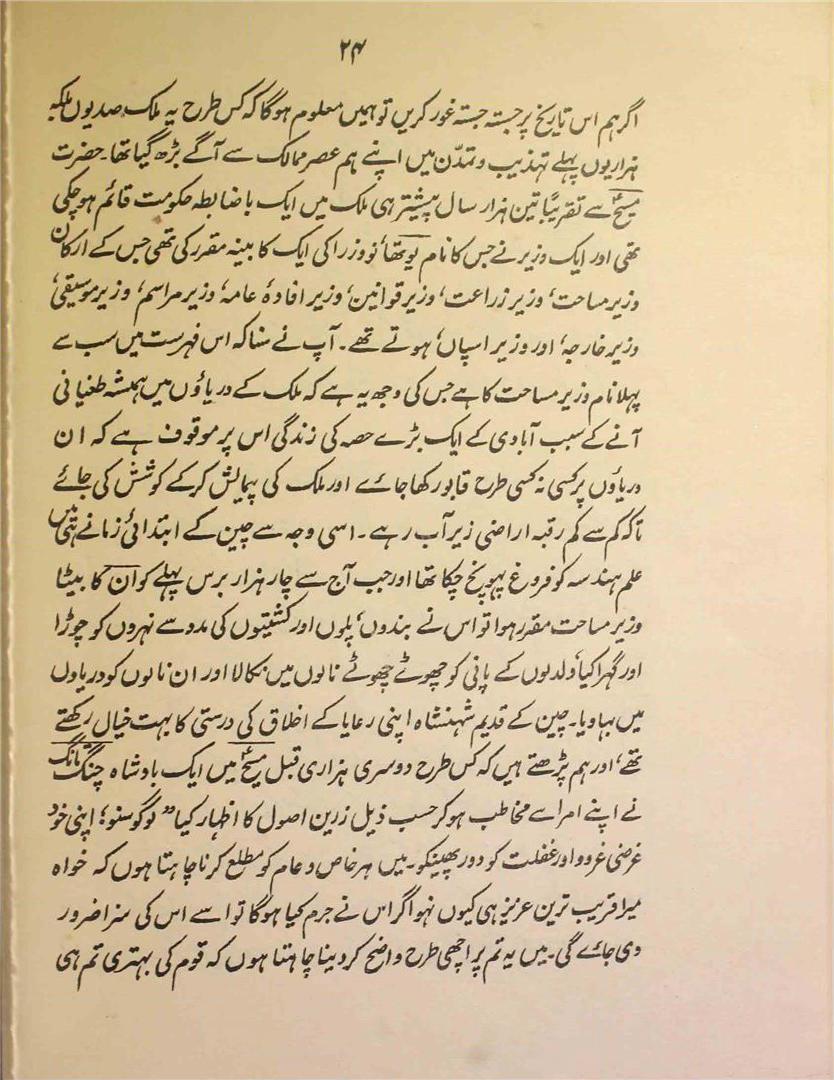 ۲۴
اگر ہم اس تاریخ پر جستہ جستہ غور کریں تو ہمیں معلوم ہوگا کہ کس طرح یہ ملک صدیوں بلکہ
ہزاریوں پہلے تہذیب و تمدّن میں اپنے ہم عصر ممالک سے آگے بڑھ گیا تھا۔ حضرت
مسیحؑ سے تقریباً تین ہزار سال پیشتر ہی ملک میں ایک باضابطہ حکومت قائم ہو چکی
تھی اور ایک وزیر نے جس کا نام یو تھا، نو وزرا کی ایک کابینہ مقرر کی تھی جس کے ارکان
وزیر مساحت، وزیر زراعت، وزیر قوانین، وزیر افادۂ عامہ، وزیر مراسم، وزیر موسیقی،
وزیر خارجہ، اور وزیر اسپاں، ہوتے تھے۔ آپ نے سنا کہ اس فہرست میں سب سے
پہلا نام وزیر مساحت کا ہے جس کی وجہ یہ ہے کہ ملک کے دریاؤں میں ہمیشہ طغیانی
آنے کے سبب آبادی کے ایک بڑے حصہ کی زندگی اس پر موقوف ہے کہ ان
دریاؤں پر کسی نہ کسی طرح قابو رکھا جائے اور ملک کی پیمایش کرکے کوشش کی جائے
تاکہ کم سے کم رقبہ اراضی زیر آب رہے۔ اسی وجہ سے چین کے ابتدائی زمانے ہی میں
علم ہندسہ کو فروغ پہونچ چکا تھا اور جب آج سے چار ہزار برس پہلے کوان کا بیٹا
وزیر مساحت مقرر ہوا تو اس نے بندوں، پلوں اور کشتیوں کی مدد سے نہروں کو چوڑا
اور گہرا کیا، ولدلوں کے پانی کو چھوٹے چھوٹے نالوں میں نکالا اور ان نالوں کو دریاوں
میں بہا دیا۔ چین کے قدیم شہنشاہ اپنی رعایا کے اخلاق کی درستی کا بہت خیال رکھتے
تھے، اور ہم پڑھتے ہیں کہ کس طرح دوسری ہزاری قبل مسیحؑ میں ایک بادشاہ چنگ ٹانگ
نے اپنے امرا سے مخاطب ہو کر حسب ذیل زرین اصول کا اظہار کیا "لوگو سنو! اپنی خود
غرضی غرور اور غفلت کو دور پھینکو۔ میں ہر خاص و عام کو مطلع کرنا چاہتا ہوں کہ خواہ
میرا قریب ترین عزیز ہی کیوں نہو اگر اس نے جرم کیا ہوگا تو اسے اس کی سزا ضرور
دی جائے گی۔ میں یہ تم پر اچھی طرح واضح کر دینا چاہتا ہوں کہ قوم کی بہتری تم ہی